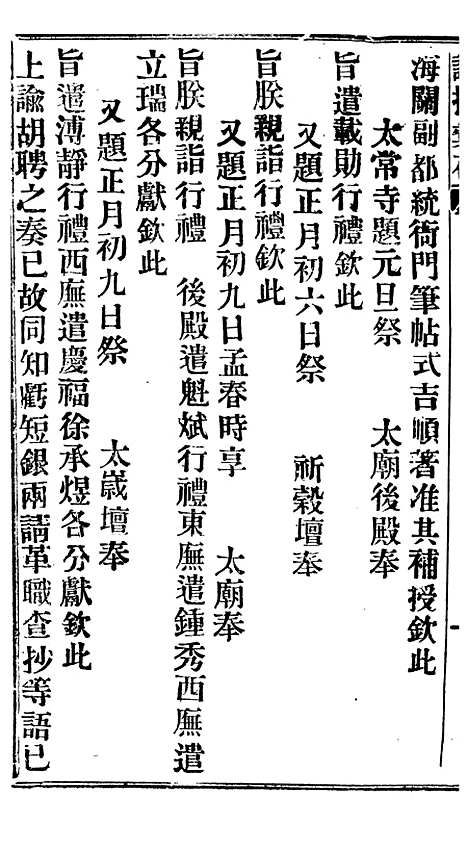 海關副都統衙門筆帖式吉順著准其補授欽此
太常寺題元旦祭　太廟後殿奉
旨遣載勛行禮欽此
又題正月初六日祭　祈穀壇奉
旨朕親詣行禮欽此
又題正月初九日孟春時享　太廟奉
旨朕親詣行禮　後殿遣魁斌行禮東廡遣鍾秀西廡遣
立瑞各分獻欽此
又題正月初九日祭　太歲壇奉
旨遣溥靜行禮西廡遣慶福徐承煜各分獻欽此
上諭胡聘之奏已故同知虧短銀兩請革職查抄等語已